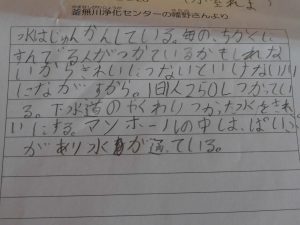 釜無川浄化センターの雄野さんより
水はじゅんかんしている。毎のちかくに
すんでる人がつかているかもしれな
いからきれいにつないといけない川
にながすから。1日人250Lつかってい
る。下水道のやくわりつかた水をきれ
いにする。マンホールの中は、ぱいぷ
があり水が通ている。